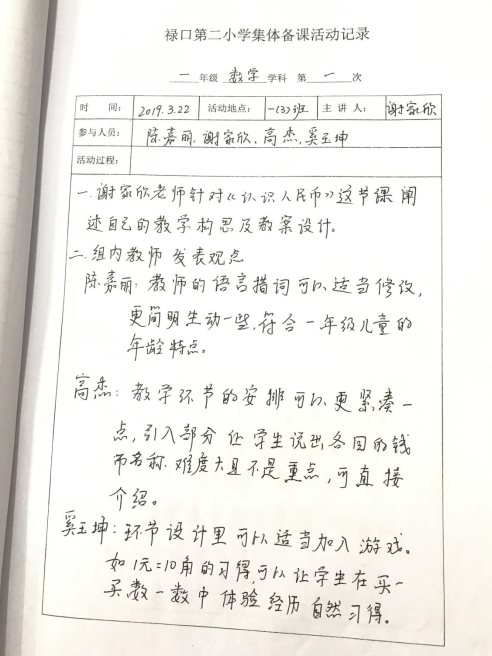 禄口第二小学集体备课活动记录
一 年级 数学 学科 第 一 次
时 间: 2019.3.22 活动地点: 一(3)班 主讲人: 谢家欣
参与人员: 陈嘉丽、谢家欣、高杰、奚玉坤
活动过程:
一.谢家欣老师针对《认识人民币》这节课阐
述自己的教学构思及教案设计。
二.组内教师发表观点
陈嘉丽:教师的语言措词可以适当修改,
更简明生动一些,符合一年级儿童的
年龄特点。
高杰:教学环节的安排可以更紧凑一
点,引入部分让学生说出各国的钱
币名称.难度大且不是重点,可直接
介绍。
奚玉坤:环节设计里可以适当加入游戏。
如1元=10角的习得,可以让学生在买一
买数一数中体验经历自然习得。